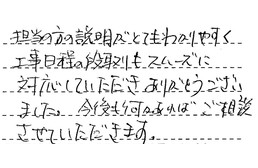 担当の方の説明がとてもわかりやすく
工事日程の段取りもスムーズに
対応していただきありがとうござい
ました。今後も何かあればご相談
させていただきます。